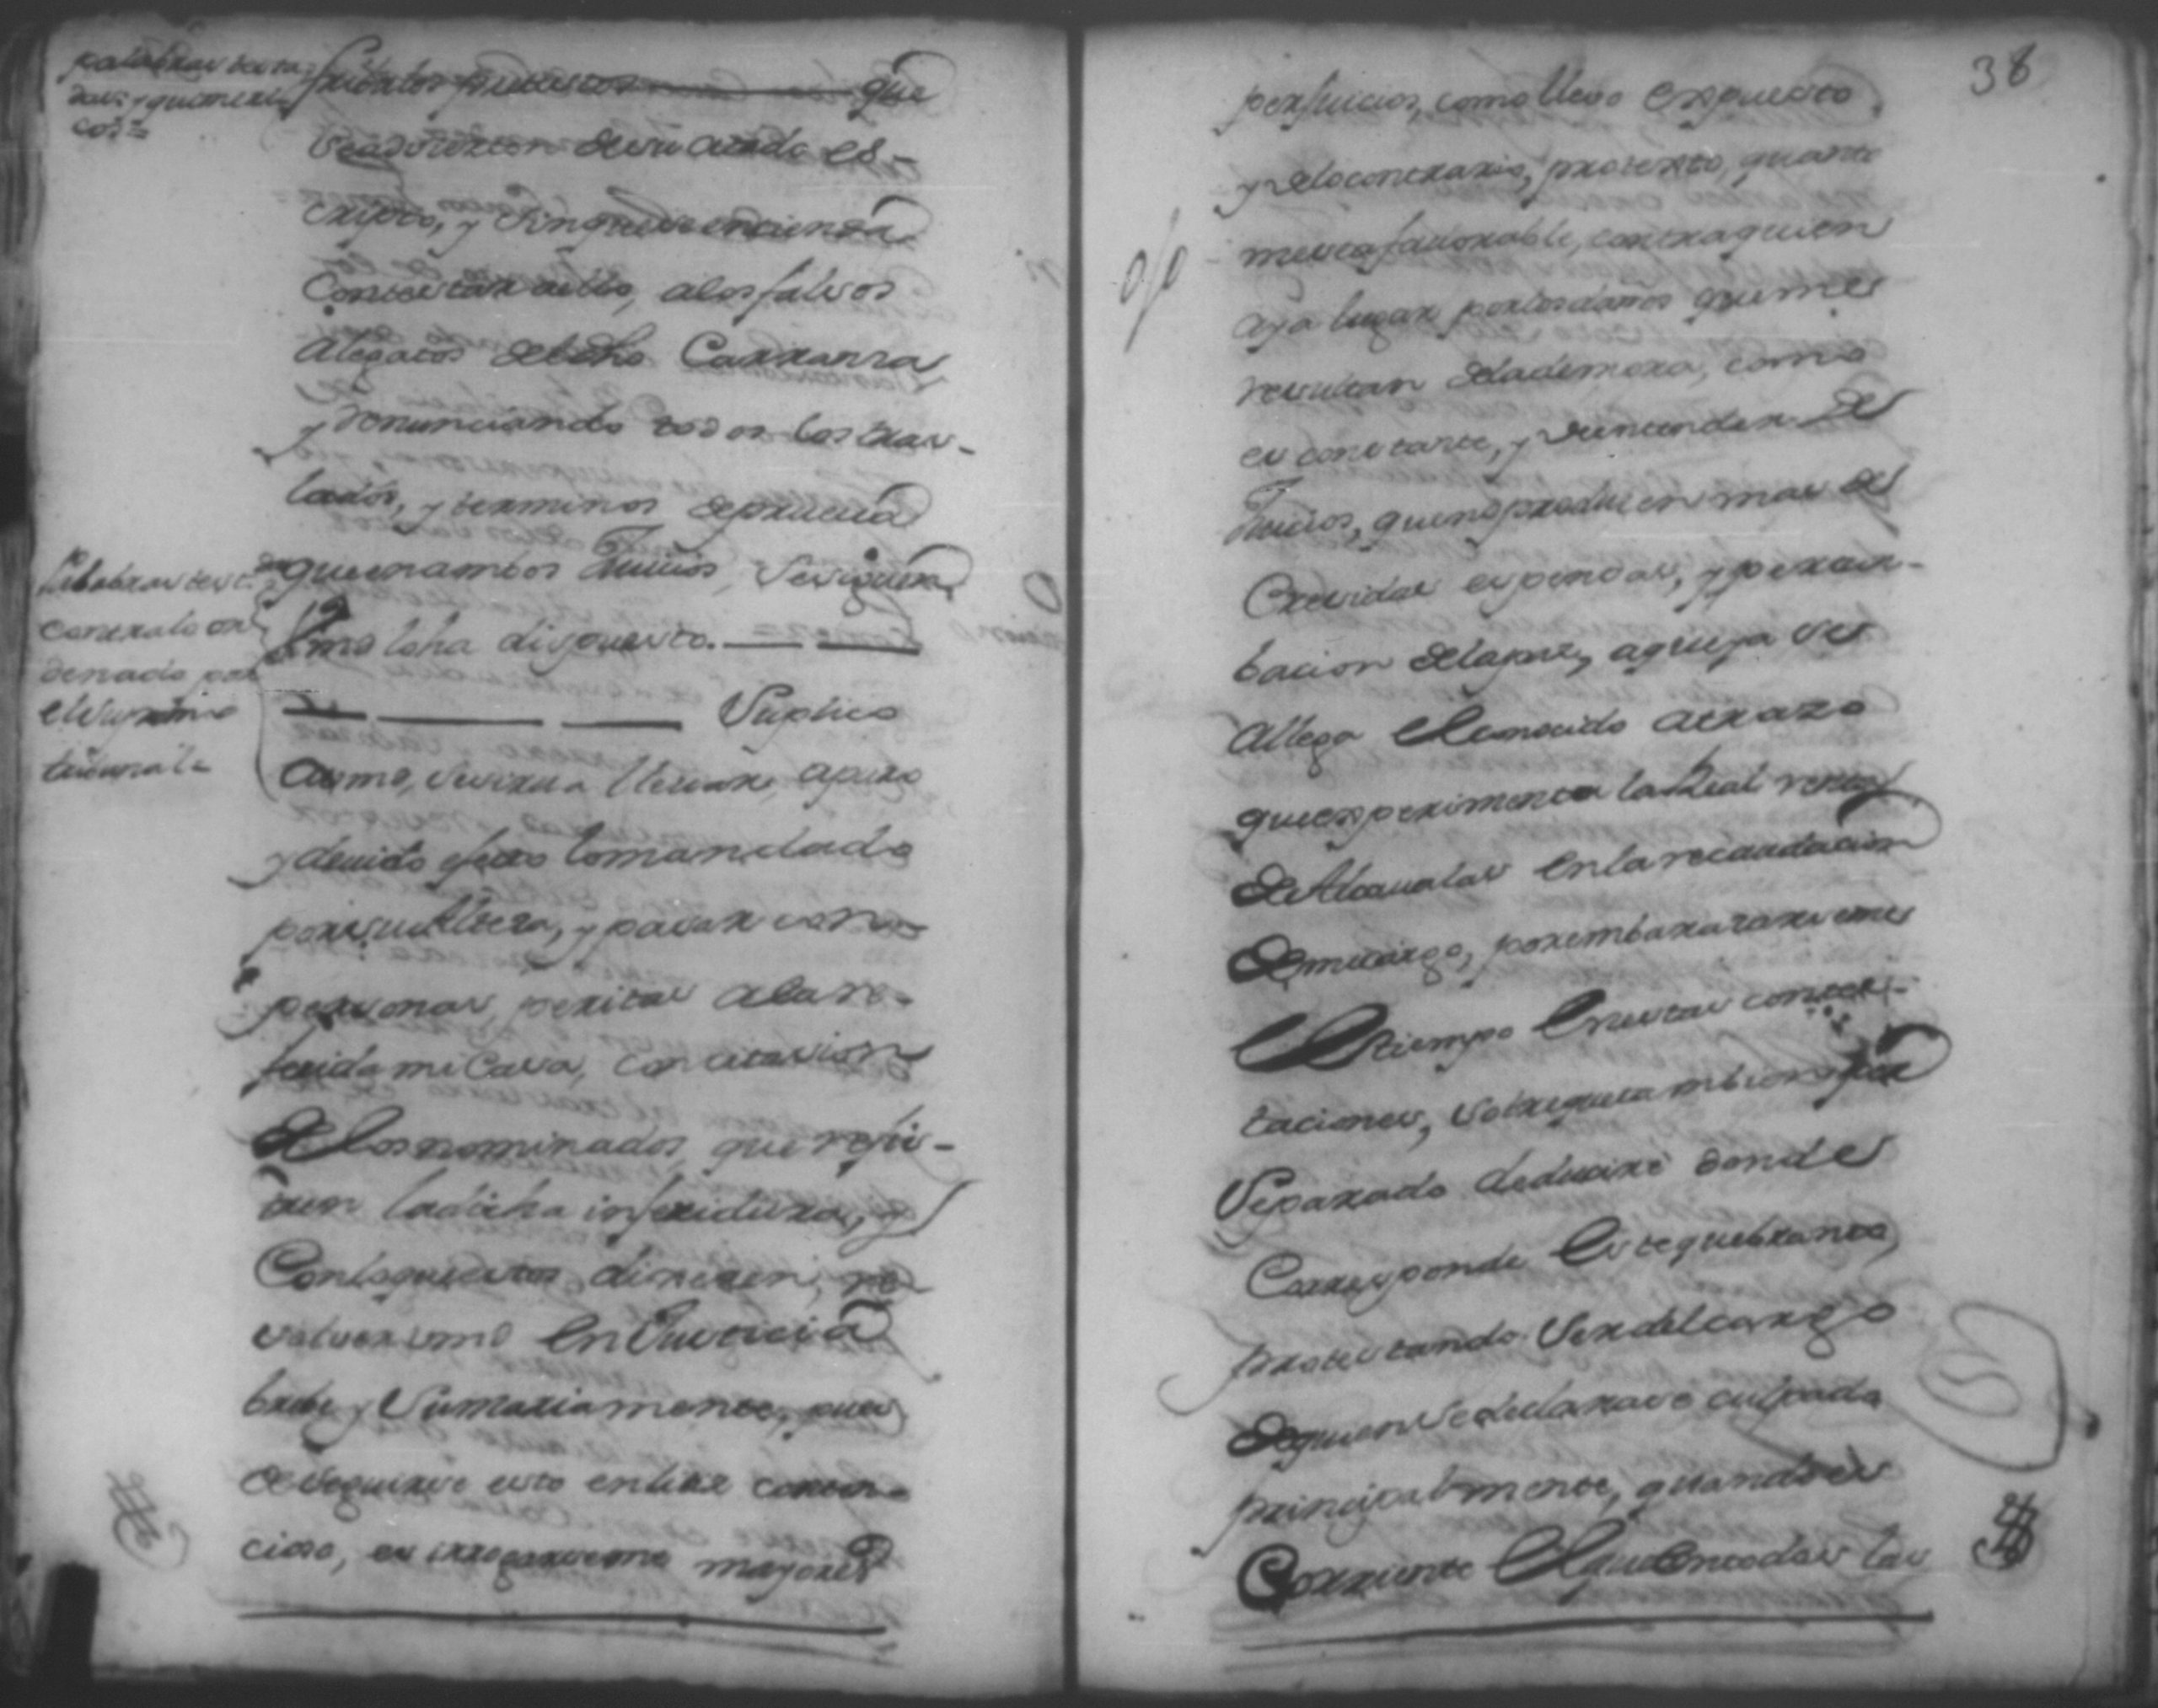 palabras testa-
das, y quimeri
cos=
frivolos pretestos que
deduxeron de su citado es-
cripto, y sin que se entienda
Contestar aello, alos falsos
Alegatos del dho Carranza
y renunciando todos los tras-
lados, y terminos de prueva
que en ambos Juicios, se sigen
Smo loha dispuesto.
Palabras test.das
contra lo or
denado por
el supremo
tribunal=
Suplico
a vmd, se sirva llevar, a puro
y devido efecto lo mandado
por su Alteza, y pasar con
personas peritas ala re-
ferida mi Casa, con citasion
de los nominados, que regis-
tren la dicha inferidura, y
Con lo que estos dixesen, re
solver vmd en Justicia
brebe y Sumariamente, pues
de seguirse esto en litis conten-
cioso, es irrogarseme mayores
38
perjuicios, como llevo expuesto
y delo contrario, protexto, quanto
me sea favorable, contra quien
aya lugar por los daños que me
resultan dela demora, como
es constante, y se entender de
Juicios, que no producen mas de
Crecidas expensas, y pertur-
bacion dela paz, aque ya se
Allega el conocido atrazo
que experimenta la Real renta
de Alcavalas en la recaudacion
de mi cargo, por embarazarseme
El tiempo en estas contex-
taciones, sobre que tambien por
Separado deducire donde
Corresponde este quebranto,
protestando ser del cargo
de quien se declarase culpado
principalmente, quando es
Corriente El que en todas las